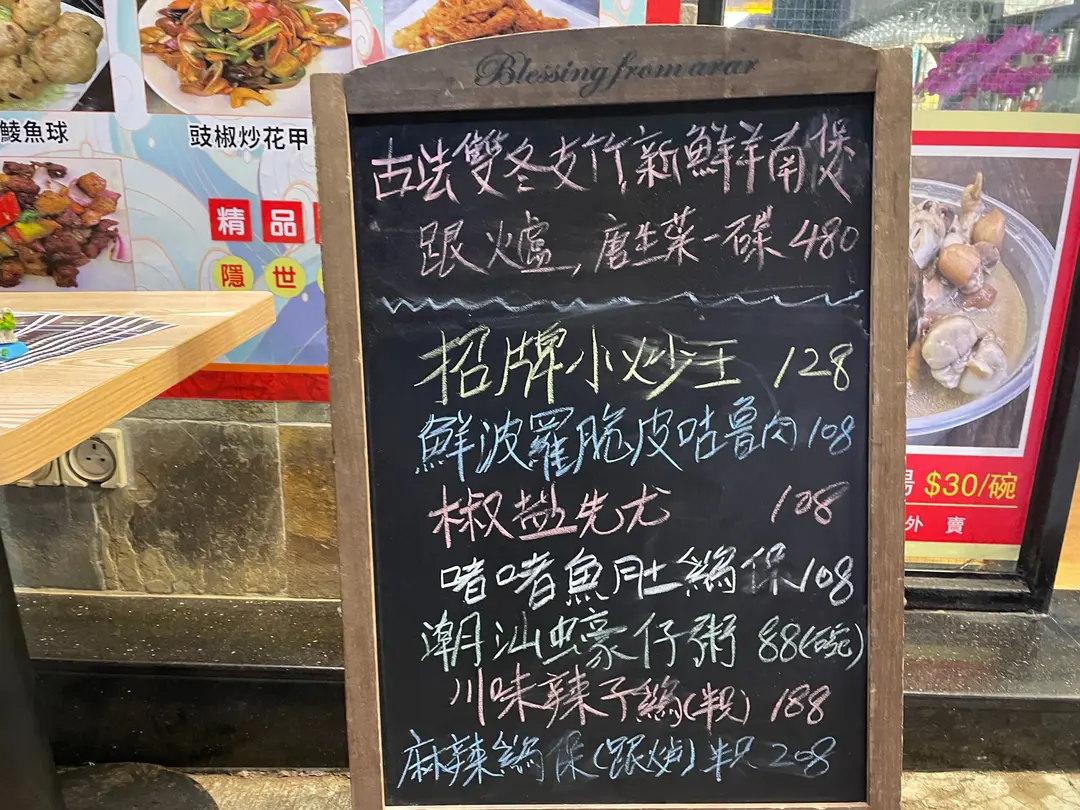 Blessing from arar
鯪魚球
豉椒炒花甲
精品
隱世
古法雙冬支竹,新鮮羊南煲
跟爐,唐生菜一碟 480
招牌小炒王 128
鮮波羅脆皮咕魯肉 108
椒盐先尤 128
啫啫魚肚鷄保 108
潮汕蠔仔粥 88(碗)
川味辣子鷄(半只) 188
麻辣鷄保(跟炉) 半只 208
$30/碗
外賣